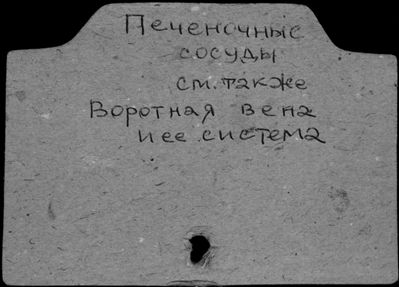 Печеночные
сосуды
см. также
Воротная вена
и ее система